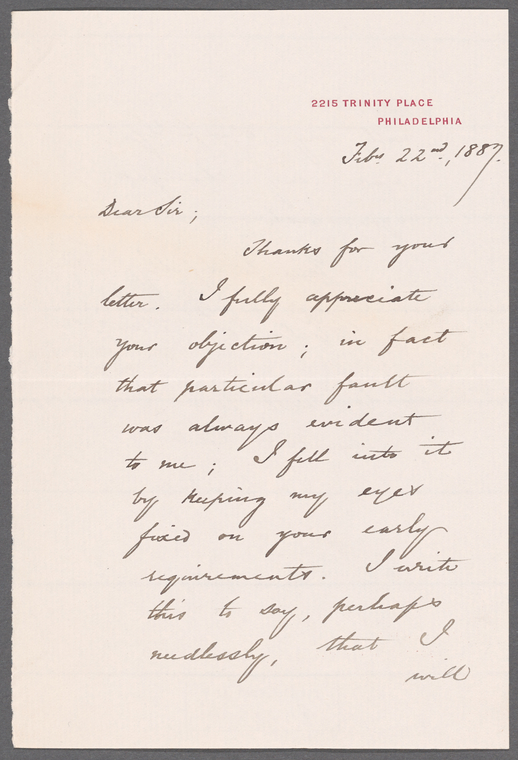 2215 TRINITY PLACE
PHILADELPHIA
Feby 22nd, 1887.
Dear Sir;
Thanks for your
letter. I fully appreciate
your objection; in fact
that particular fault
was always evident
to me; I fell into it
by keeping my eyes
fixed on your early
requirements. I write
this to say, perhaps
needlessly, that I
will